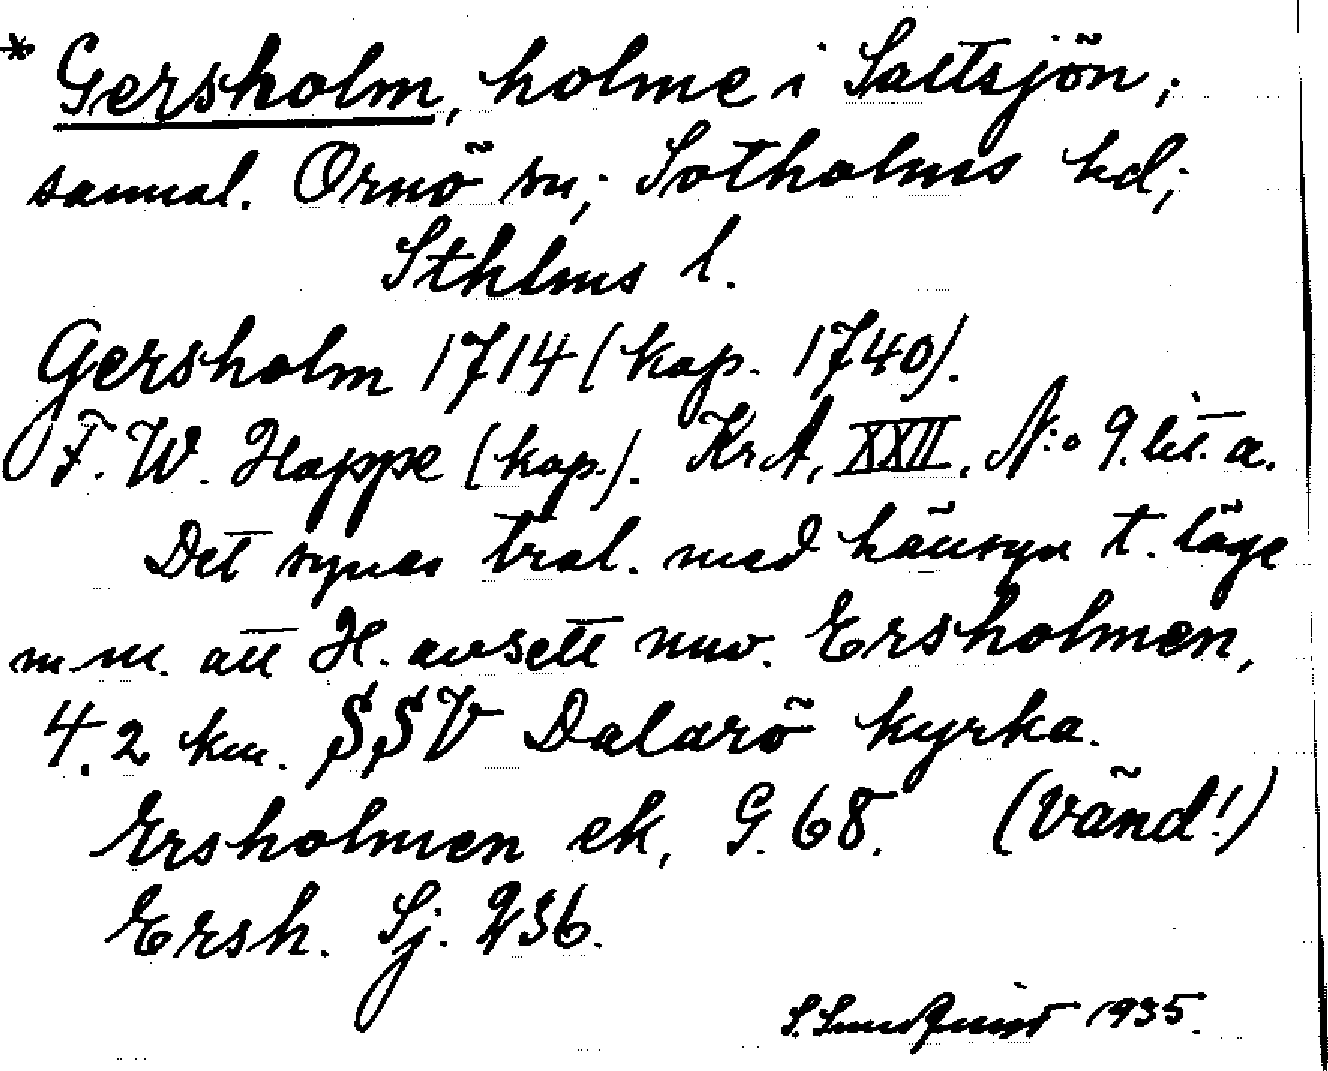 * Gersholm, holme i Saltsjön;
samml. Ornö sn; Sotholms hd;
Sthlms l.
Gersholm 1714 (kop. 1740).
F. W. Happe (kop.). KrA, XXII. N:o 9. lit. a.
Det synes trol. med hänsyn t. läge
m. m. att H. avsett nuv. Ersholmen,
4.2 km. SSV Dalarö kyrka.
Ersholmen ek. G. 68. (Vänd!)
Ersh. Sj. 236.
S. Sundquist 1935.